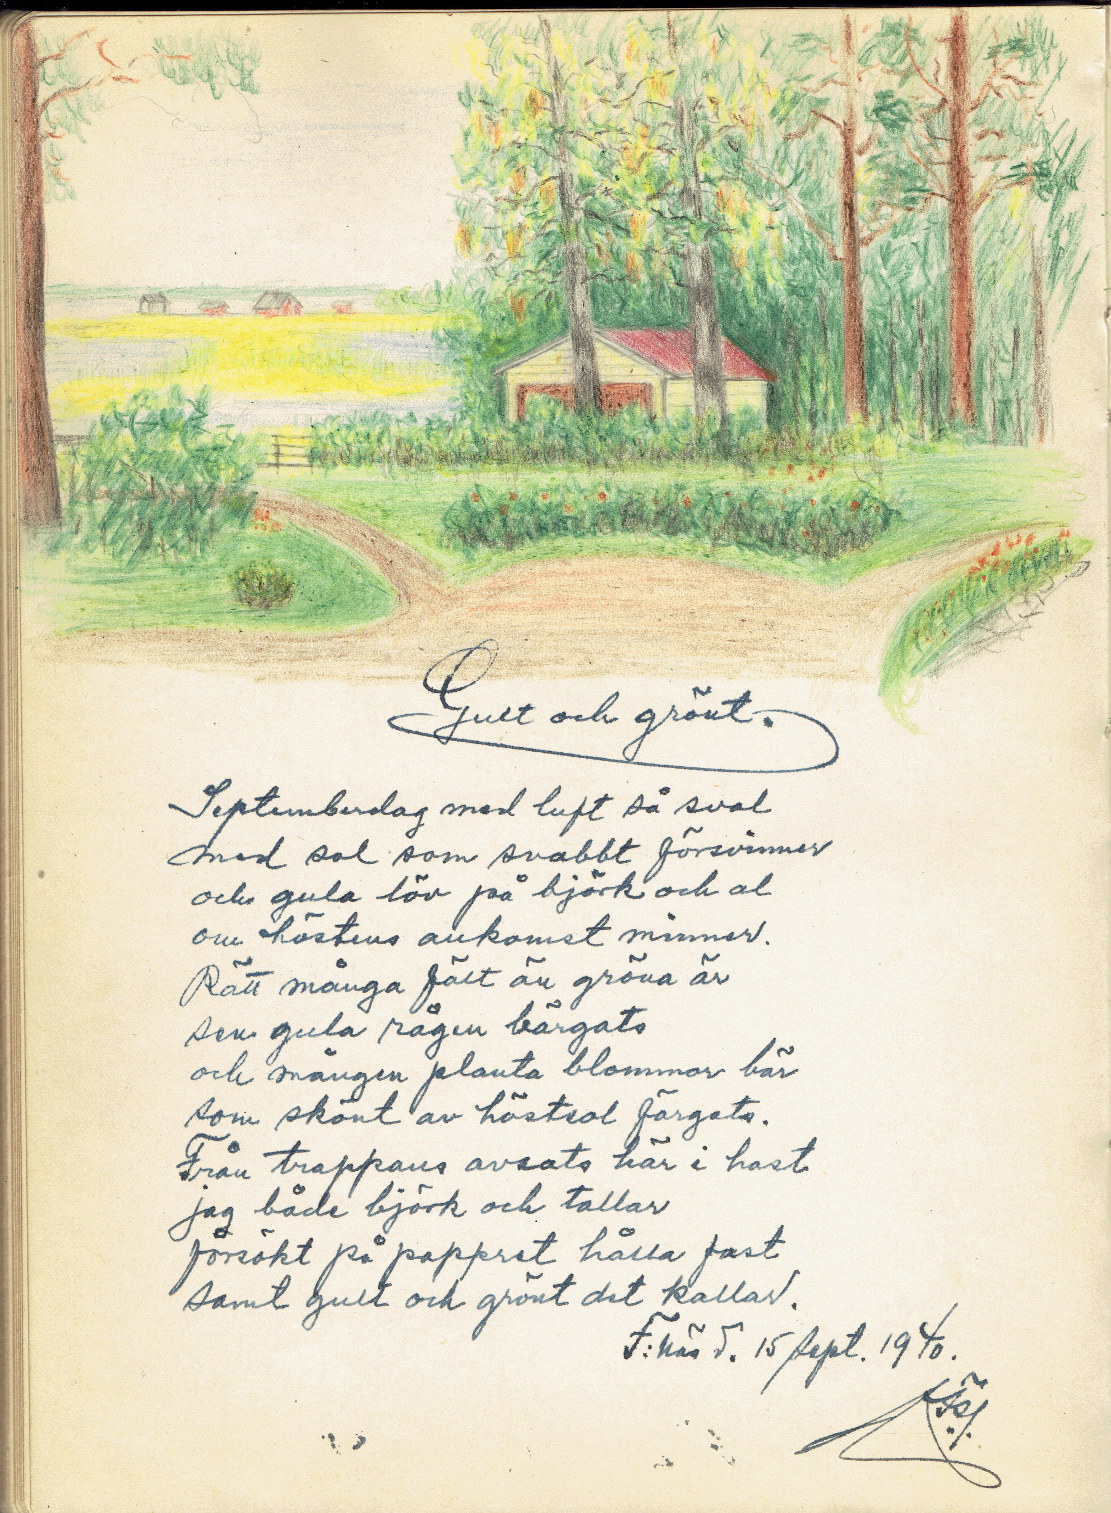 Gult och grönt.
Septemberdag med luft så sval
med sol som snabbt försvinner
och gula löv på björk och al
om höstens ankomst minner.
Rätt många fält än gröna är
sen gula rågen bärgats
och mången planta blommor bär
som skönt av höstsol färgats.
Från trappans avsats här i hast
jag både björk och tallar
försökt på pappret hålla fast
samt gult och grönt det kallar.
F:näs d. 15 sept. 1940.